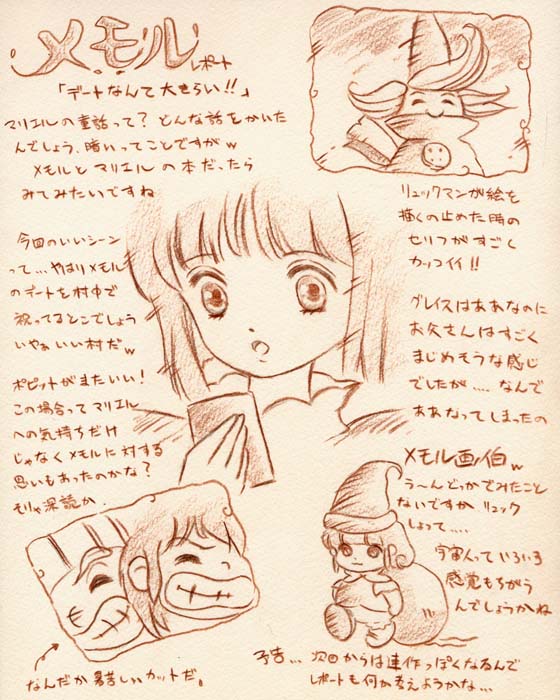 メモル
レポート
「デートなんて大きらい!!」
マリエルの童話って?どんな話をかいた
んでしょう、暗いってことですがw
メモルとマリエルの本だったら
みてみたいですね
リュックマンが絵を
描くの止めた時の
セリフがすごく
カッコイイ!!
今回のいいシーン
って…やはりメモル
のデートを村中で
祝ってるとこでしょう
いやぁいい村だw
グレイスはああなのに
お父さんはすごく
まじめそうな感じ
でしたが....なんで
ああなってしまったの
ポピットがまたいい!
この場合ってマリエル
への気持ちだけ
じゃなくメモルに対する
思いもあったのかな?
そりゃ深読か
メモル画伯w
う〜んどっかでみたこと
ないですか リュック
しょって....
宇宙人っていろいろ
感覚もちがう
んでしょうかね
なんだか暑苦しいカットだ。
予告… 次回からは連作っぽくなるんで
レポートも何か考えようかな…